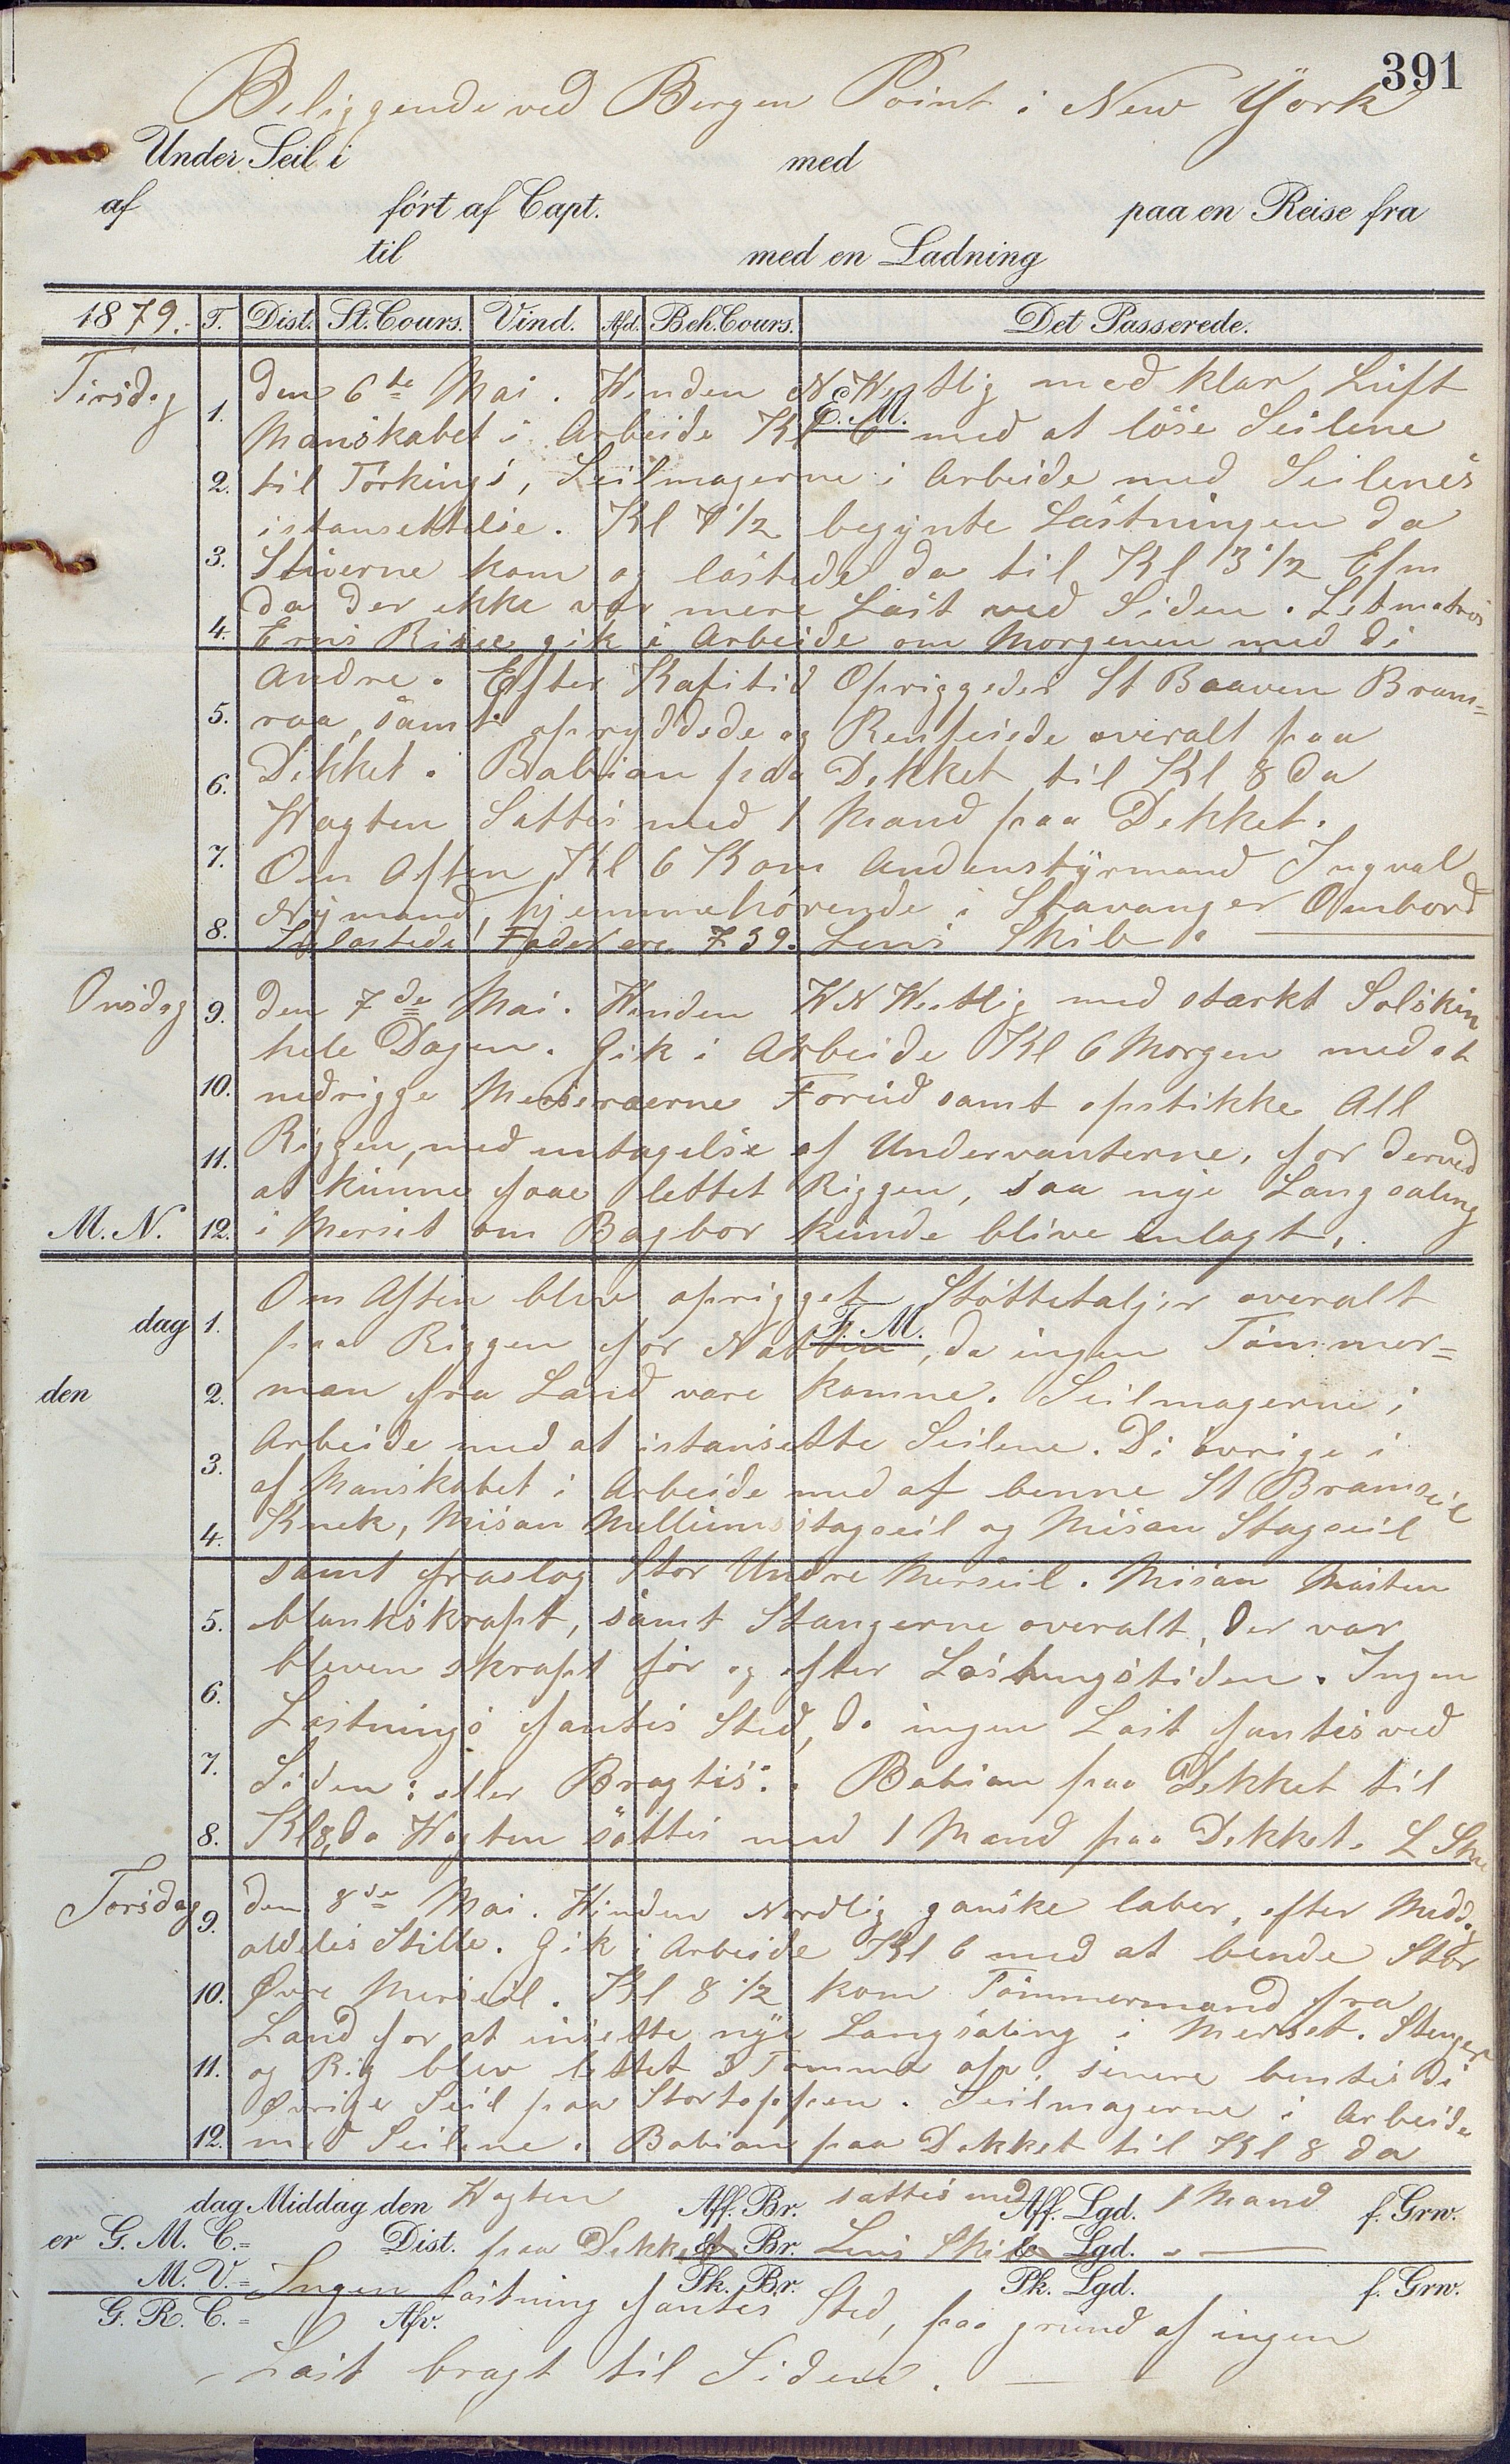 391
Beliggende ved Bergen Point i New York
Under Seil i med
af ført af Capt. paa en Reise fra
til med en Ladning
1879. T. Dist. St. Cours. Vind. Afd. Beh. Cours. Det Passerede.
Tirsdag den 6te Mai. Winden N Westlig med klar Luft
E. M.
1. Manskabet i Arbeide Kl 6 med at löse Seilene
2. til Törkings, Seilmagerne i Arbeide med Seilenes
istansettelse. Kl 7 1/2 begynte Lastningen da
3. Stuverne kom og lastede da til Kl 3 1/2 Efm
da der ikke var mere Last ved Siden. Letmatros
4. Erns gik i Arbeide om Morgenen med di
Andre. Efter Kafitid Opriggedes St Boaven Bram=
5. raa, samt opryddede og Renfeiede overalt paa
6. Dekket. Babian paa Dekket til Kl 8 da
Wagten Sattes med 1 Mand paa Dekket.
7. Om Aften Kl 6 Kom Andenstyrmand Ingval
Nymand, hjemmehörende i Stavanger Ombord
8. Fade 739. Lens Skib.
Onsdag 9. den 7de Mai. Winden WN Westlig med starkt Solskin
hele Dagen. Gik i Arbeide Kl 6 Morgen med at
10. nedrigge Merseraerne Forud samt opstikke All
11. Riggen, med untagelse af Undervanterne, for derved
at kunne faae lettet Riggen, saa nye Langsaling
M. N. 12. i Merset om Bagbor kunde blive inlagt.
Om Aften blev oprigget Støttetaljer overalt
F. M.
dag 1. paa Riggen for Natten, da ingen Tømmer=
den 2. man fra Land vare komne. Seilmagerne i
Arbeide med at istansette Seilene. Di øvrige i
3. af Manskabet i Arbeide med af benne St Bramseil
4. Knek, Misan Mellumstagseil og Misan Stagseil
samt fraslog Stor Undre Merseil. Misan Masten
5. blankskrapt, samt Stangerne overalt, der var
bleven skrapt for og efter Lastningstiden. Ingen
6. Lastnings fantes Sted, da ingen Last fantes ved
7. Siden: eller Bragtes. Babian paa Dekket til
8. Kl 8, da Wagten sattes med 1 Mand paa Dekket. L Ski
Torsdag 9. den 8de Mai. Winden Nordlig ganske laber, efter Middag
aldeles Stille. Gik i Arbeide Kl 6 med at bende Stor
10. Øvre Merseil. Kl 8 1/2 kom Tömmermand fra
Land for at insette nye Langsaling i Merset. Stenger
11. og Rig blev lettet 3 Tomme op, senere bentes di
Øvrige Seil paa Stortoppen. Seilmagerne i Arbeide
12. med Seilene. Babian paa Dekket til Kl 8 da
dag Middag den Wagten Aff. Br. sattes med Aff. Lgd. 1 Mand f. Grw.
er G. M. C.= Dist. paa Dekket Br. Lens Skib Lgd.
M. V.= Pk. Br. Pk. Lgd. f. Grw.
Ingen Lastning fantes Sted, paa grund af ingen
G. R. C.= Afv.
Last bragt til Siden.